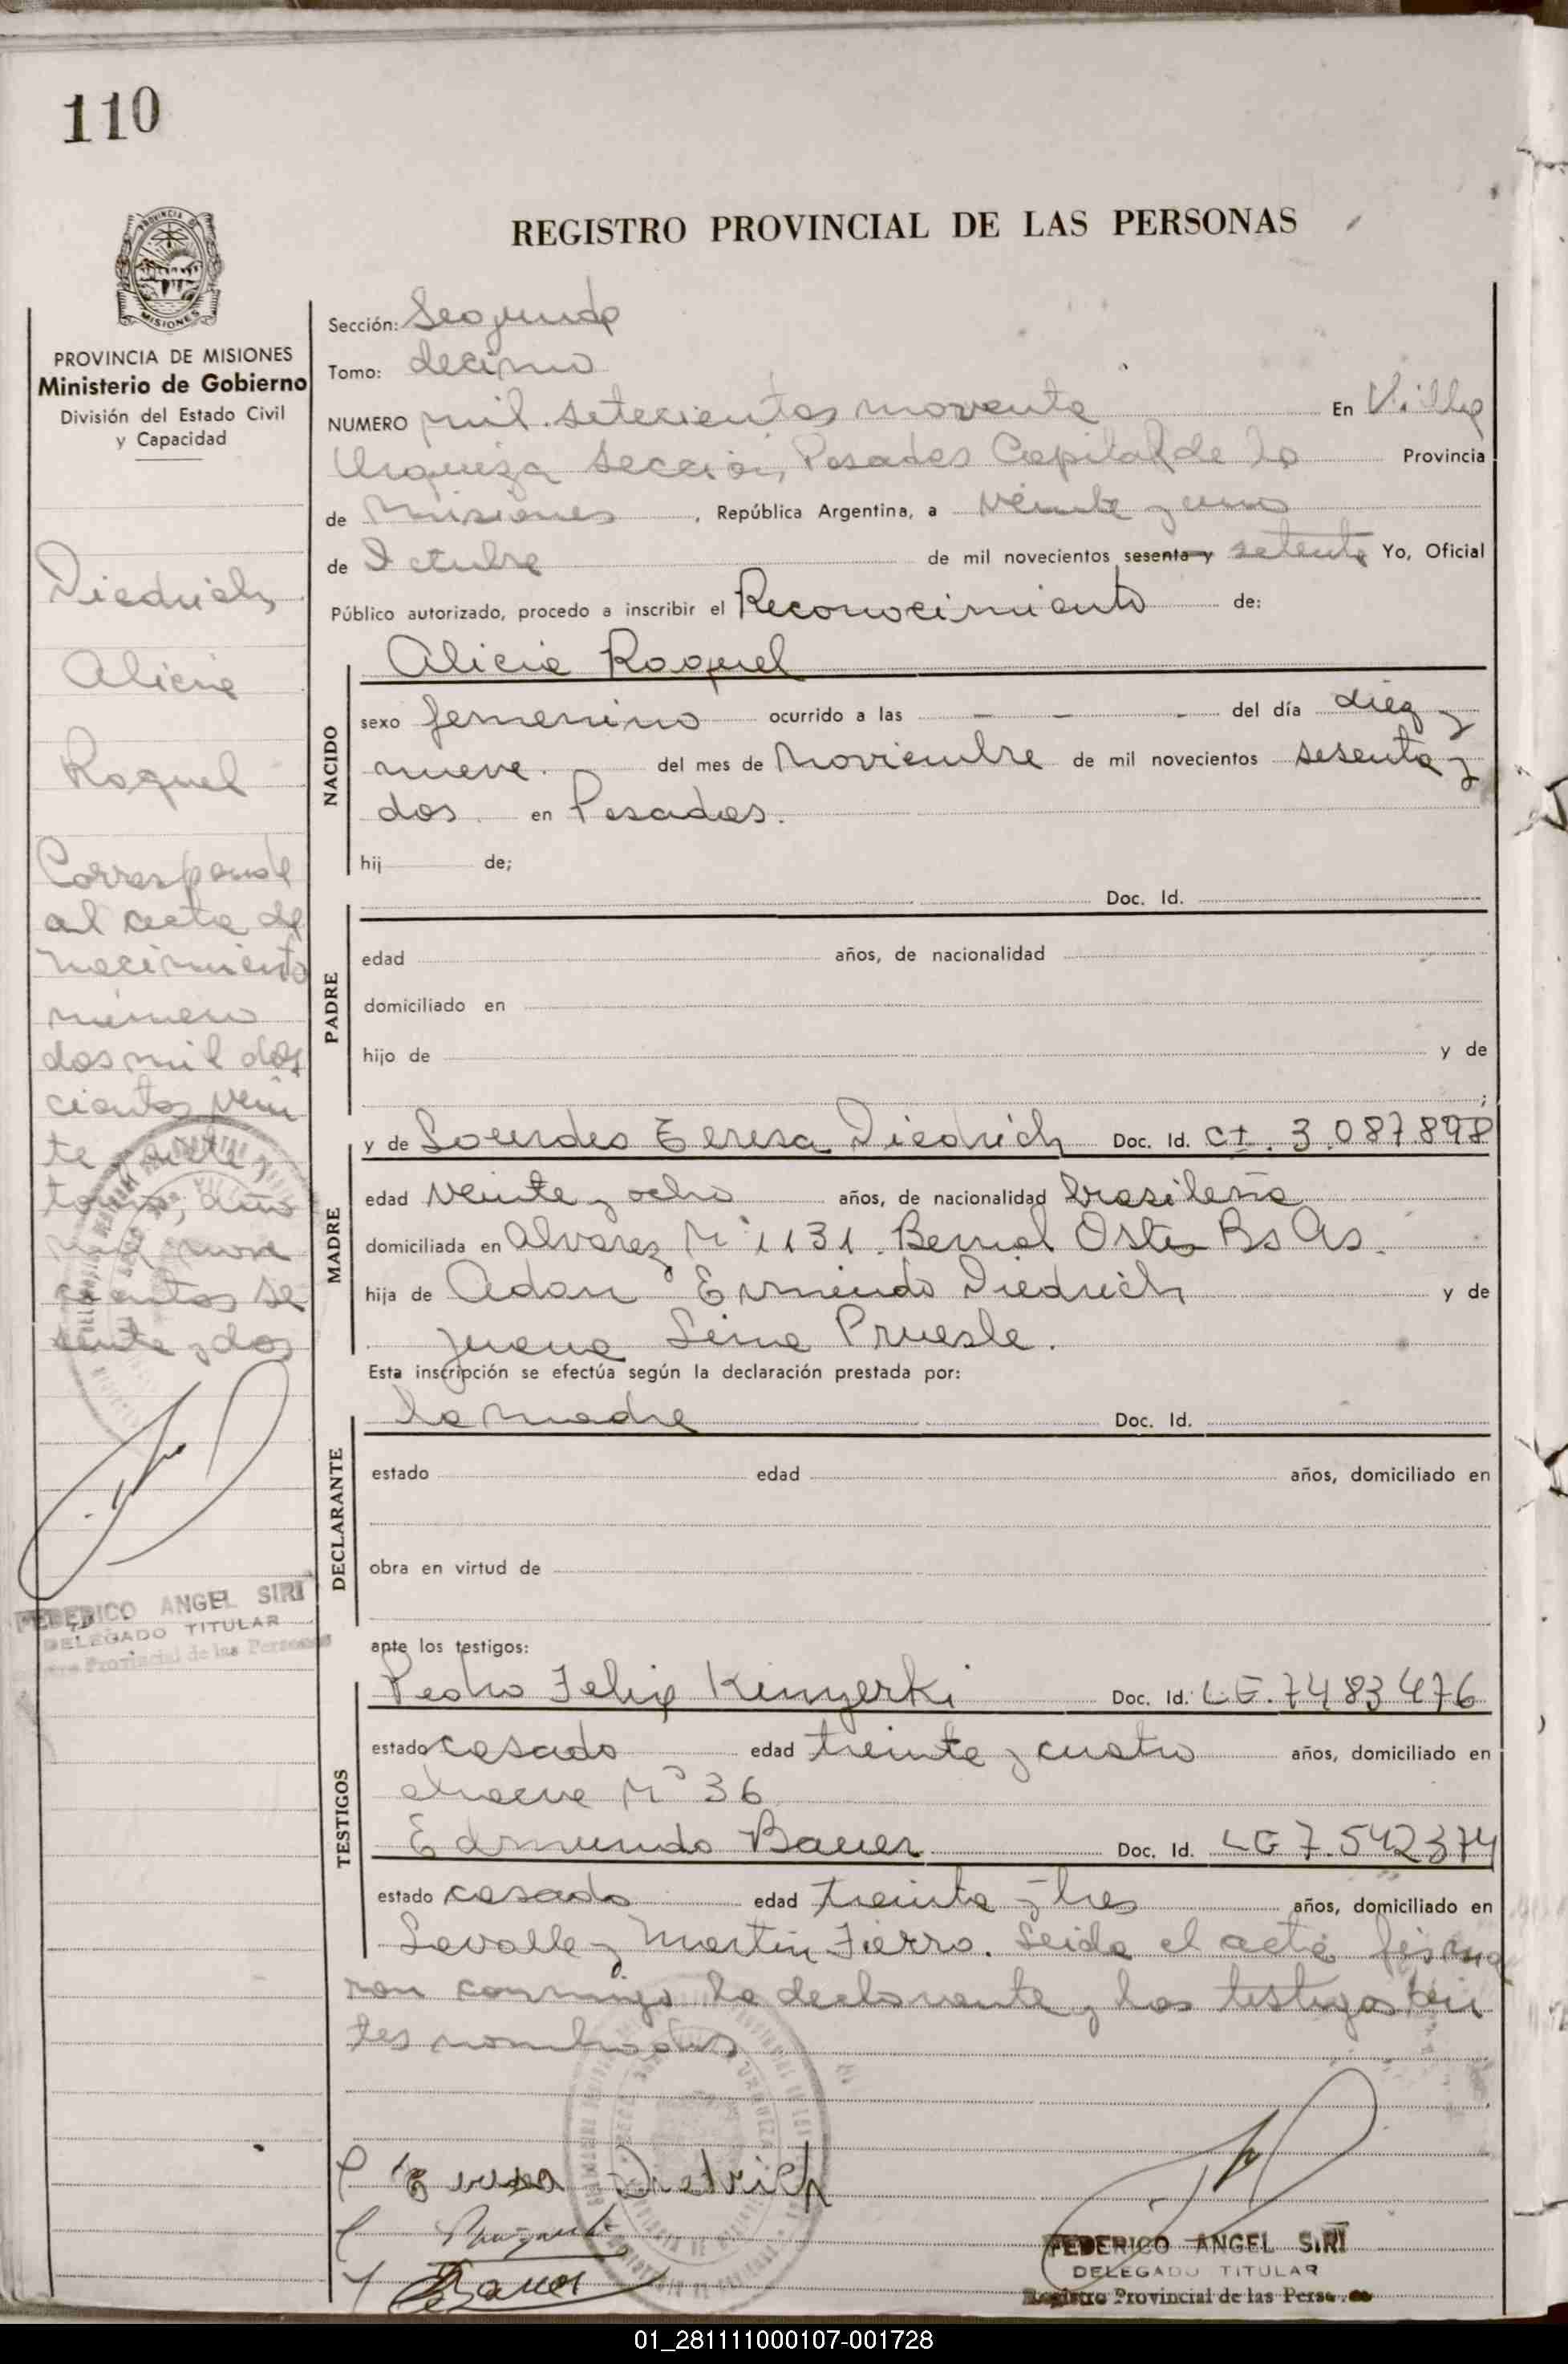 110
REGISTRO PROVINCIAL DE LAS PERSONAS
PROVINCIA DE MISIONES
Ministerio de Gobierno
División del Estado Civil
y Capacidad
Diedrich,
Alicia
Raquel
Corresponde
al acta de
nacimiento
número
dos mil dos
cientos vein
te
tomo, año
mil nove
cientos se
senta y dos
FEDERICO ANGEL SIRI
DELEGADO TITULAR
Provincial de las Personas
Sección: Segunda
Tomo: decimo
NUMERO mil setecientos noventa En Villa
Urquiza Sección, Posadas Capital de la Provincia
de Misiones, República Argentina, a veinte y uno
de Octubre de mil novecientos sesenta y setenta Yo, Oficial
Público autorizado, procedo a inscribir el Reconocimiento de:
NACIDO
Alicia Raquel
sexo femenino ocurrido a las - - - del día diez y
nueve del mes de Noviembre de mil novecientos sesenta y
dos en Posadas.
hij de;
PADRE
Doc. Id.
edad años, de nacionalidad
domiciliado en
hijo de y de
;
MADRE
y de Lourdes Teresa Diedrich Doc. Id. CI. 3.087.898
edad veinte y ocho años, de nacionalidad brasileña
domiciliada en Alvarez Nº 1131. Bernal Oste Bs As.
hija de Adan Ermindo Diedrich y de
Juana Lina Pruesle.
Esta inscripción se efectúa según la declaración prestada por:
DECLARANTE
la madre Doc. Id.
estado edad años, domiciliado en
obra en virtud de
ante los testigos:
TESTIGOS
Pedro Felix Doc. Id. LE. 7483476
estado casado edad treinta y cuatro años, domiciliado en
chacra Nº 36
Edmundo Bauer Doc. Id. LE 7.542374
estado casado edad treinta y tres años, domiciliado en
Lavalle y Martin Fierro. Leida el acta firma
ron conmigo la declarante y los testigos an
tes nombrados
Diedrich
Bauer
FEDERICO ANGEL SIRI
DELEGADO TITULAR
Registro Provincial de las Personas
01_281111000107-001728